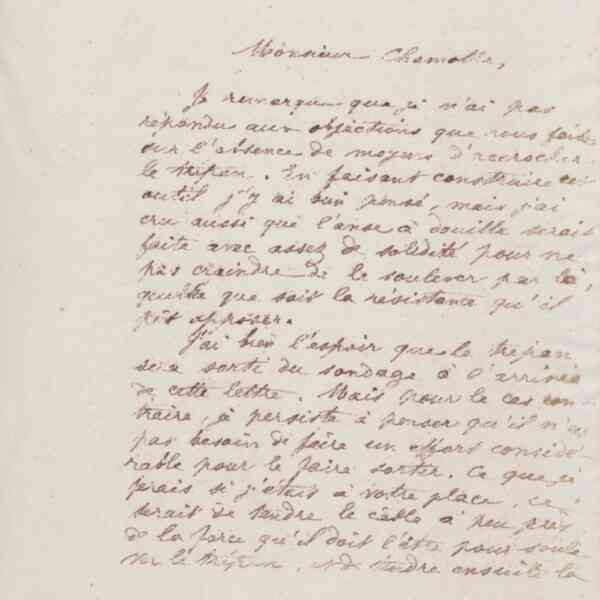 Monsieur Chamolle,
Je remarque que je n'ai pas
répondu aux objections que vous faites
sur l'absence de moyens d'accrocher
le trépan. En faisant construire cet
outil j'y ai bien pensé, mais j'ai
cru aussi que l'anse à douille serait
faite avec assez de solidité pour ne
pas craindre de le soulever par là,
quelle que soit la résistance qu'il
pût opposer.
J'ai bien l'espoir que le trépan
sera sorti du sondage à l'arrivée
de cette lettre. Mais pour le cas con
traire, je persiste à penser qu'il n'est
pas besoin de faire un effort considé
rable pour le faire sortir. Ce que je
ferais si j'étais à votre place, ce
serait de tendre le câble à peu près
de la force qu'il doit l'être pour soule
ver le trépan, et de tendre ensuite la